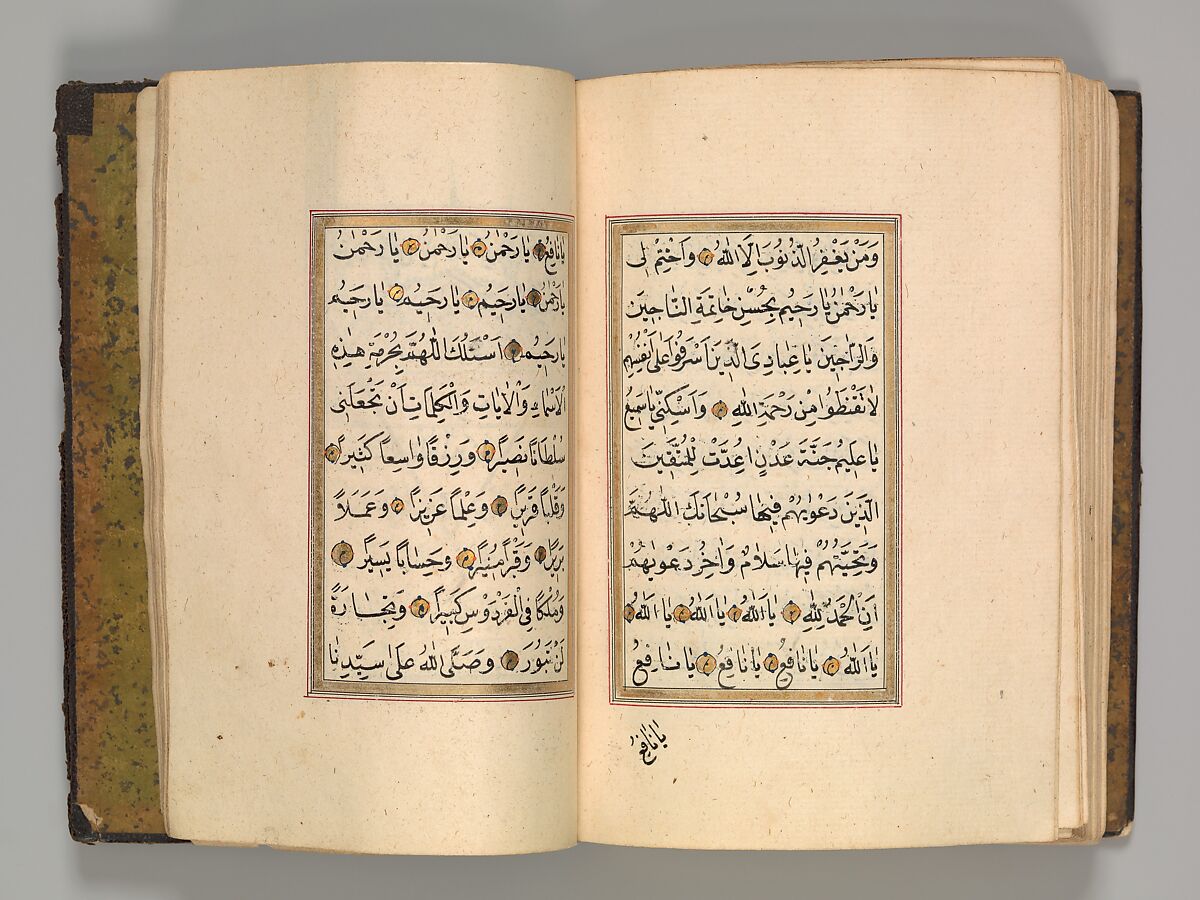 وَمَنْ يَغْفِرُ الذُّنُوبَ اِلَّا اللّٰهُ وَاخْتِمْ لِى
يَا رَحْمٰنُ يَا رَحِيمُ بِحُسْنِ خَاتِمَةِ النَّاجِينَ
وَالرَّاجِينَ يَا عِبَادِىَ الَّذِينَ اَسْرَفُوا عَلٰى اَنْفُسِهِمْ
لَا تَقْنَطُوا مِنْ رَحْمَةِ اللّٰهِ وَاَسْكِنِّى يَا سَمِيعُ
يَا عَلِيمُ جَنَّةَ عَدْنٍ اُعِدَّتْ لِلْمُتَّقِينَ
الَّذِينَ دَعْوٰيهُمْ فِيهَا سُبْحَانَكَ اللّٰهُمَّ
وَتَحِيَّتُهُمْ فِيهَا سَلَامٌ وَاٰخِرُ دَعْوٰيهُمْ
اَنِ الْحَمْدُ لِلّٰهِ يَا اَللّٰهُ يَا اَللّٰهُ يَا اَللّٰهُ
يَا اَللّٰهُ يَا نَافِعُ يَا نَافِعُ يَا نَافِعُ
يَا نَافِعُ
يَا نَافِعُ يَا رَحْمٰنُ يَا رَحْمٰنُ يَا رَحْمٰنُ
يَا رَحْمٰنُ يَا رَحِيمُ يَا رَحِيمُ يَا رَحِيمُ
يَا رَحِيمُ اَسْئَلُكَ اللّٰهُمَّ بِحُرْمَةِ هٰذِهِ
الْاَسْمَاءِ وَالْاٰيَاتِ وَالْكَلِمَاتِ اَنْ تَجْعَلَنِى
سُلْطَانًا نَصِيرًا وَرِزْقًا وَاسِعًا كَثِيرًا
وَقَلْبًا قَرِيرًا وَعِلْمًا عَزِيزًا وَعَمَلًا
بَرِيرًا وَقَبْرًا مُنِيرًا وَحِسَابًا يَسِيرًا
وَمُلْكًا فِى الْفِرْدَوْسِ كَبِيرًا وَتِجَارَةً
لَنْ تَبُورَ وَصَلَّى اللّٰهُ عَلٰى سَيِّدِنَا